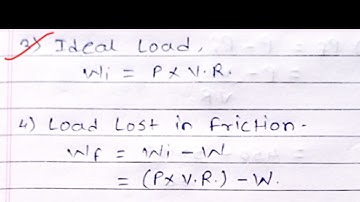 3) Ideal Load,
Wi = P x V.R.
4) Load Lost in Friction -
Wf = Wi - W
= (P x V.R.) - W.